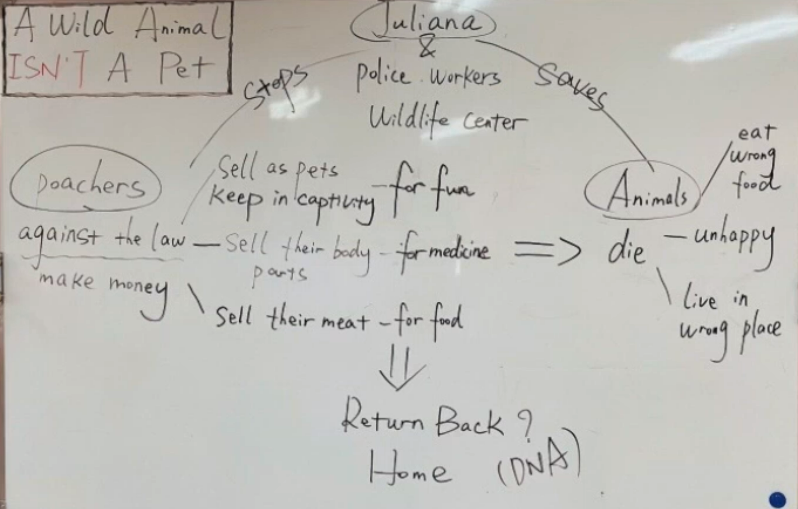 A Wild Animal
ISN'T A Pet
Juliana
&
Police Workers
Wildlife Center
Stops
Saves
Poachers
against the law
make money
Sell as pets
Keep in captivity - for fun
Sell their body - for medicine
parts
Sell their meat - for food
=>
Animals
die
eat
wrong
food
- unhappy
Live in
wrong place
Return Back ?
Home (DNA)